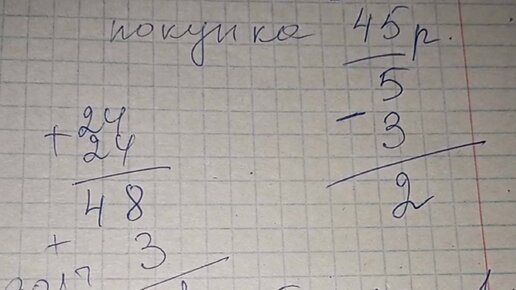 покупка 45р.
5
- 3
2
24
+ 24
48
+ 3